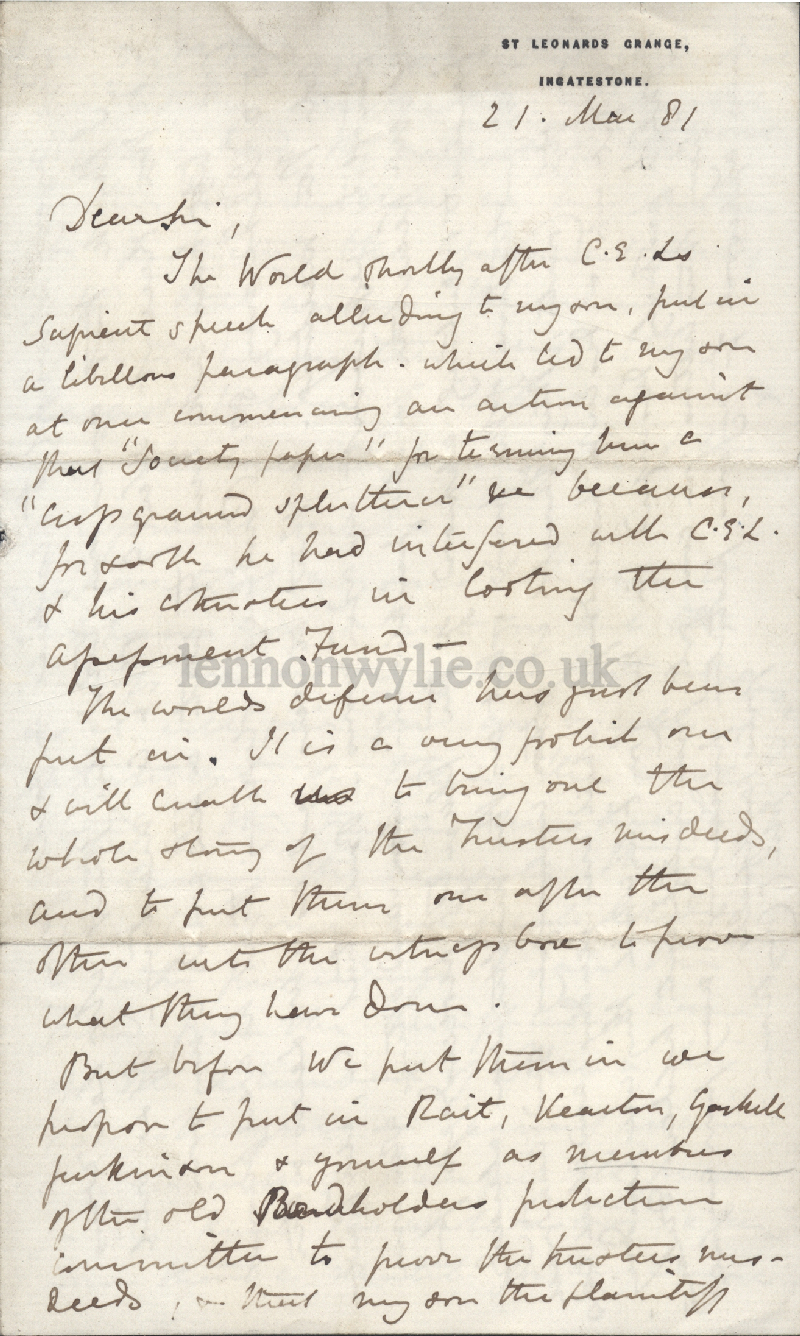 ST LEONARDS GRANGE,
INGATESTONE.
21. Mar 81
Dear Sir,
The World shortly after C.E.Ls
Sapient speech alluding to my son, put in
a libellous paragraph. which led to my son
at once commencing an action against
that "Society paper" for terming him a
"cross grained splutterer" &c because,
forsooth he had interfered with C.E.L.
& his cotrustees in looting the
assessment Fund —
The worlds defence has just been
put in. It is a very prolix one
& will enable us to bring out the
whole story of the Trustees misdeeds,
and to put them one after the
other into the witness box to prove
what they have done.
But before we put them in we
propose to put in Rait, Kearton, Gaskell
parkinson & yourself as members
of the old Bondholders protection
committee to prove the trustees mis-
deeds, & that my son the plaintiff
lennonwylie.co.uk